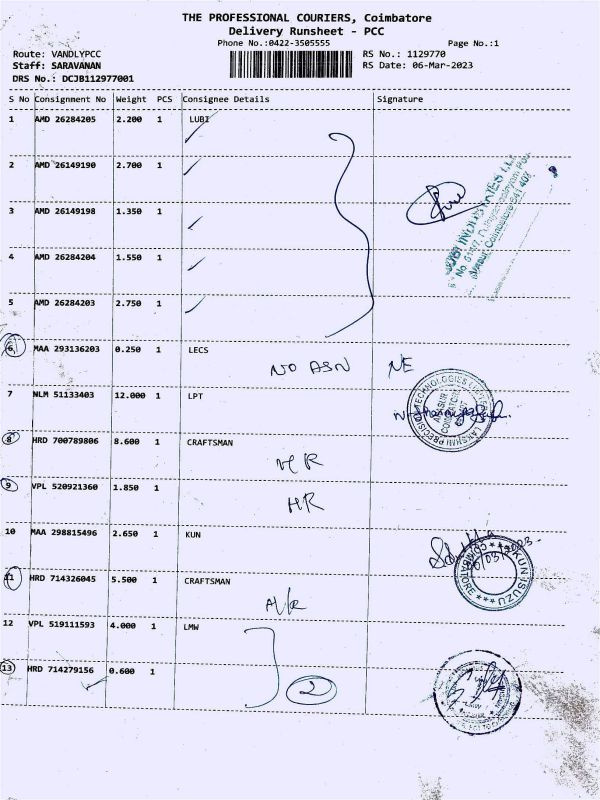 THE PROFESSIONAL COURIERS, Coimbatore
Delivery Runsheet - PCC
Phone No.:0422-3505555 Page No.:1
Route: VANDLYPCC RS No.: 1129770
Staff: SARAVANAN RS Date: 06-Mar-2023
DRS No.: DCJB112977001
S No Consignment No Weight PCS Consignee Details Signature
1 AMD 26284205 2.200 1 LUBI
2 AMD 26149190 2.700 1
3 AMD 26149198 1.350 1
4 AMD 26284204 1.550 1
5 AMD 26284203 2.750 1
6 MAA 293136203 0.250 1 LECS
NO ASN NE
7 NLM 51133403 12.000 1 LPT
8 HRD 700789806 8.600 1 CRAFTSMAN
HR
9 VPL 520921360 1.850 1
HR
10 MAA 298815496 2.650 1 KUN
11 HRD 714326045 5.500 1 CRAFTSMAN
12 VPL 519111593 4.000 1 LMW
13 HRD 714279156 0.600 1
2